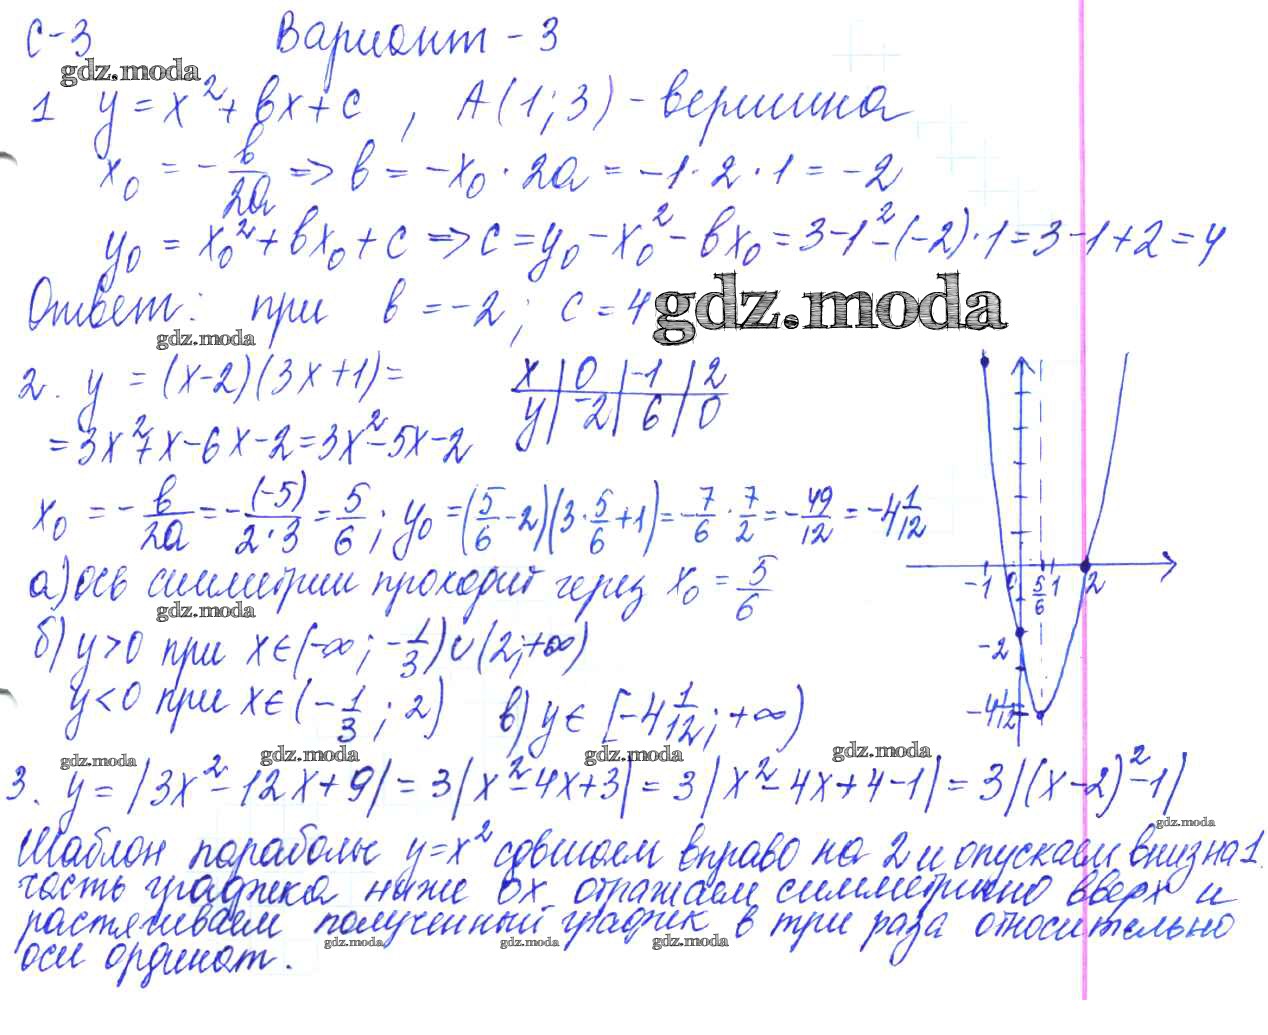 С-3 Вариант - 3
gdz.moda
1 y = x² + bx + c , A(1; 3) - вершина
x₀ = - b/2a => b = -x₀ · 2a = -1 · 2 · 1 = -2
y₀ = x₀² + bx₀ + c => c = y₀ - x₀² - bx₀ = 3 - 1² - (-2) · 1 = 3 - 1 + 2 = 4
Ответ: при b = -2 ; c = 4
gdz.moda
gdz.moda
2. y = (x-2)(3x+1) =
= 3x² + x - 6x - 2 = 3x² - 5x - 2
x | 0 | -1 | 2
y | -2 | 6 | 0
x₀ = - b/2a = - (-5)/2·3 = 5/6 ; y₀ = (5/6 - 2)(3 · 5/6 + 1) = - 7/6 · 7/2 = - 49/12 = -4 1/12
а) ось симметрии проходит через x₀ = 5/6
gdz.moda
б) y > 0 при x ∈ (-∞ ; - 1/3) ∪ (2; +∞)
y < 0 при x ∈ (- 1/3 ; 2) в) y ∈ [-4 1/12 ; +∞)
-1 0 5/6 1 2
-2
-4 1/12
gdz.moda gdz.moda gdz.moda gdz.moda
3. y = |3x² - 12x + 9| = 3|x² - 4x + 3| = 3|x² - 4x + 4 - 1| = 3|(x-2)² - 1|
gdz.moda
Шаблон параболы y = x² сдвигаем вправо на 2 и опускаем вниз на 1.
часть графика ниже OX отражаем симметрично вверх и
растягиваем полученный график в три раза относительно
gdz.moda gdz.moda gdz.moda
оси ординат.